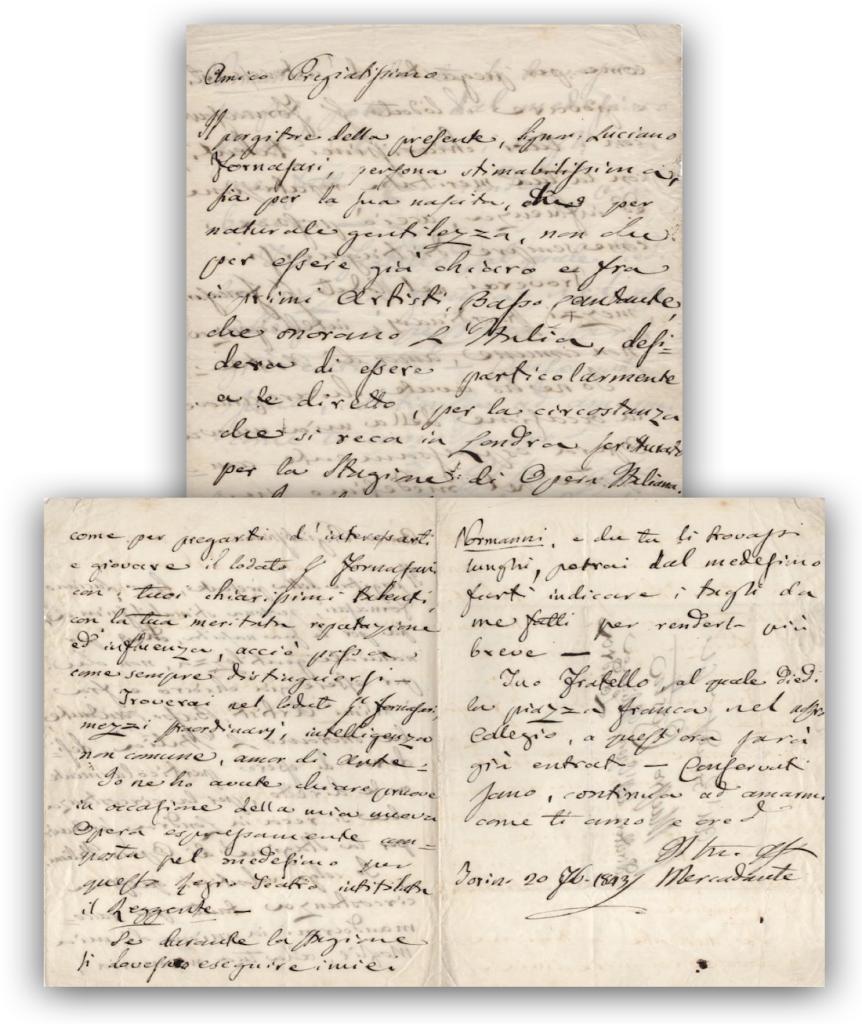 Amico Pregiatissimo
Il porgitore della presente, Signor Luciano
Fornasari, persona stimabilissima,
sia per la sua nascita, che per
naturale gentilezza, non che
per essere già chiaro e fra
i primi Artisti, Basso cantante,
che onorano L'Italia, desi-
dera di essere particolarmente
a te diretto, per la circostanza
che si reca in Londra scritturato
per la Stagione di Opera Italiana.
come per pregarti d'interessarti
e giovare il lodato Sr Fornasari
con i tuoi chiarissimi talenti,
con la tua meritata reputazione
ed influenza, acciò possa
come sempre distinguersi. —
Troverai nel lodato Sr Fornasari,
mezzi straordinarj, intelligenza
non comune, amor di Arte. -
Io ne ho avute chiare pruove
in occasione della mia nuova
Opera espressamente com-
posta pel medesimo per
questo Regio Teatro intitolata
il Reggente —
Se durante la Stagione
si dovessero eseguire i miei
Normanni, e che tu li trovassi
lunghi, potrai dal medesimo
farti indicare i tagli da
me fatti per renderla più
breve —
Tuo Fratello, al quale diedi
la piazza franca nel
Collegio, a quest'ora sarà
già entrato — Conservati
sano, continua ad amarmi
come ti amo e
Torino 20 Fb. 1843 Mercadante